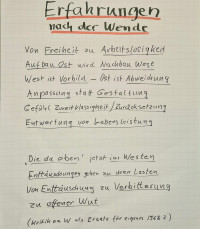 Erfahrungen
nach der Wende
Von Freiheit zu Arbeitslosigkeit
Aufbau Ost wird Nachbau West
West ist Vorbild – Ost ist Abweichung
Anpassung statt Gestaltung
Gefühl Zweitklassigkeit/Zurücksetzung
Entwertung von Lebensleistung
"Die da oben" jetzt im Westen
Enttäuschungen gehen zu ihren Lasten
Von Enttäuschung zu Verbitterung
zu offener Wut
als Ersatz für eigene